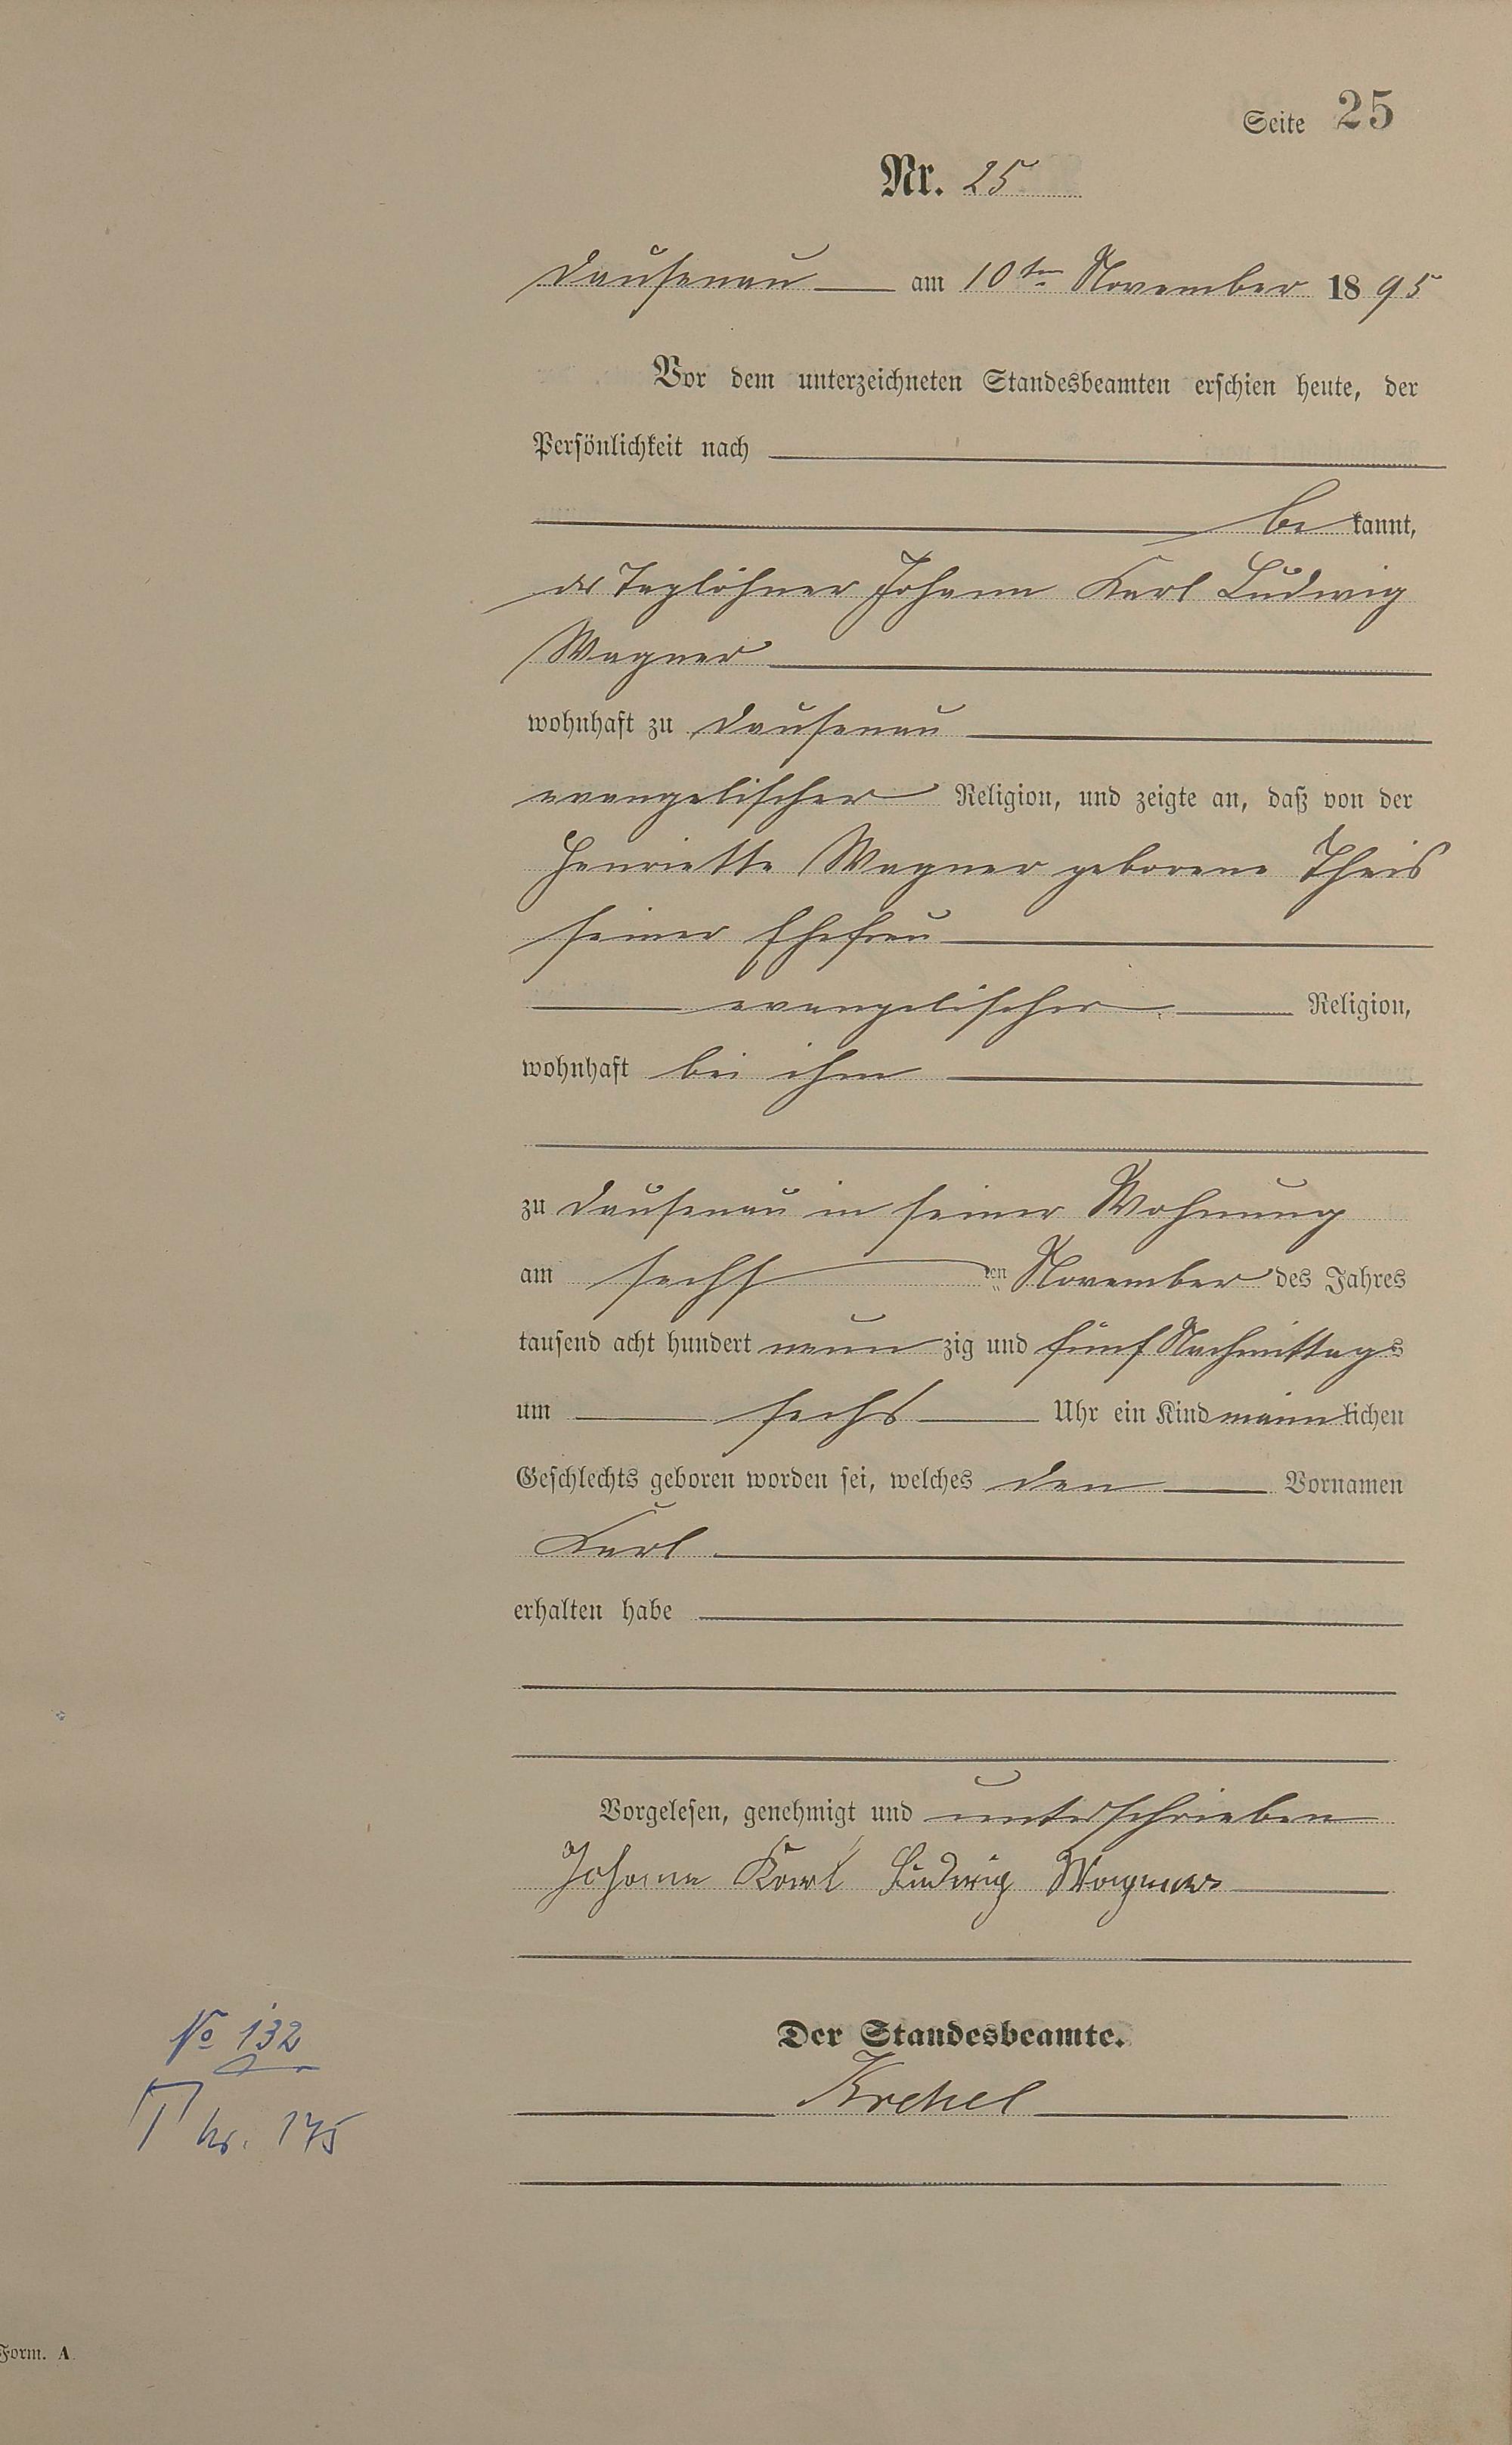 Seite 25
Nr. 25
Dausenau am 10ten November 1895
Vor dem unterzeichneten Standesbeamten erschien heute, der
Persönlichkeit nach
be kannt,
der Taglöhner Johann Karl Ludwig
Wagner
wohnhaft zu Dausenau
evangelischer Religion, und zeigte an, daß von der
Henriette Wagner geborene Theis
seiner Ehefrau
evangelischer Religion,
wohnhaft bei ihm
zu Dausenau in seiner Wohnung
am sechsten November des Jahres
tausend acht hundert neunzig und fünf Nachmittags
um sechs Uhr ein Kind männlichen
Geschlechts geboren worden sei, welches den Vornamen
Karl
erhalten habe
Vorgelesen, genehmigt und unterschrieben
Johann Karl Ludwig Wagner
Der Standesbeamte.
No 132
nr. 175
Form. A.